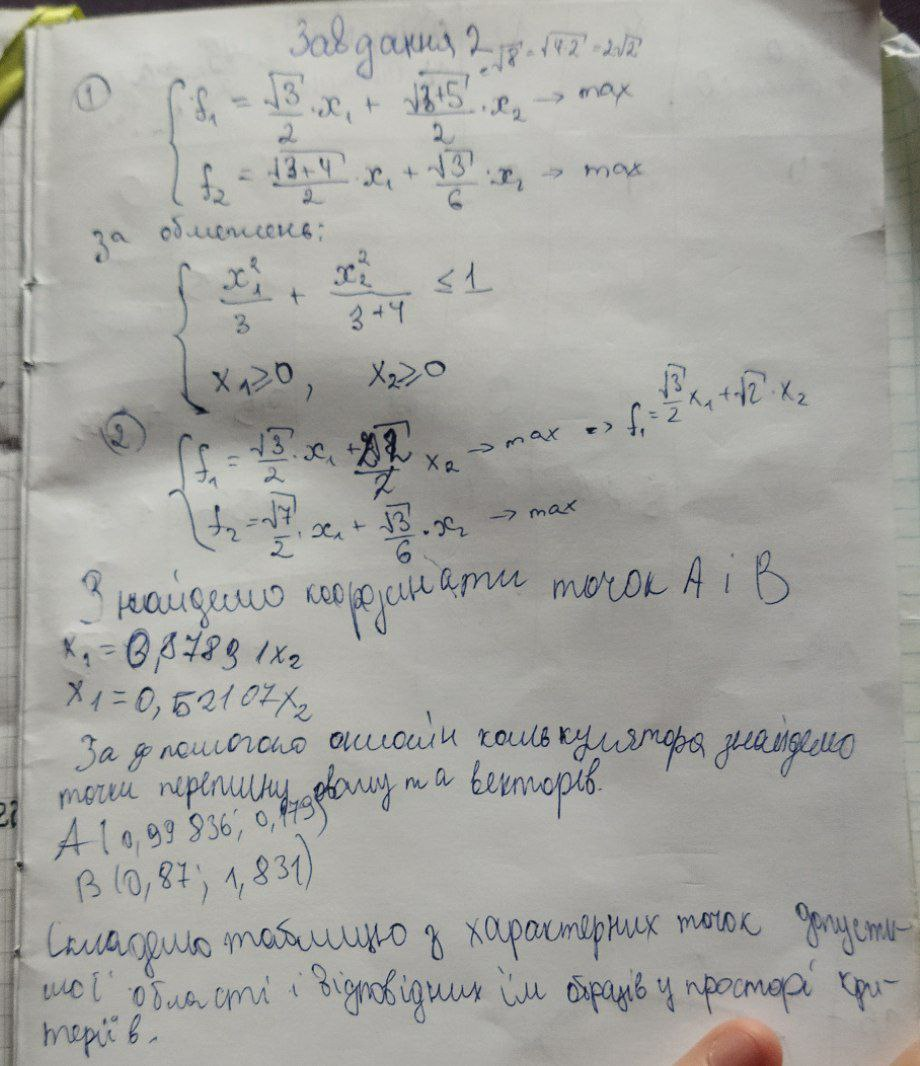 Завдання 2
= √8 = √4·2 = 2√2
① { f₁ = √3/2 · x₁ + √(3+5)/2 · x₂ → max
f₂ = √(3+4)/2 · x₁ + √3/6 · x₂ → max
за обмежень:
{ x₁²/3 + x₂²/(3+4) ≤ 1
x₁ ≥ 0, x₂ ≥ 0
② { f₁ = √3/2 · x₁ + 2√2/2 x₂ → max => f₁ = √3/2 x₁ + √2 · x₂
f₂ = √7/2 · x₁ + √3/6 · x₂ → max
Знайдемо координати точок A і B
x₁ = 8789 1x₂
x1 = 0,52107x₂
За допомогою онлайн калькулятора знайдемо
точки перетину овалу та векторів.
A(0,99836; 0,179)
B(0,87; 1,831)
Складемо таблицю з характерних точок допусти-
мої області і відповідних їм образів у просторі кри-
теріїв.